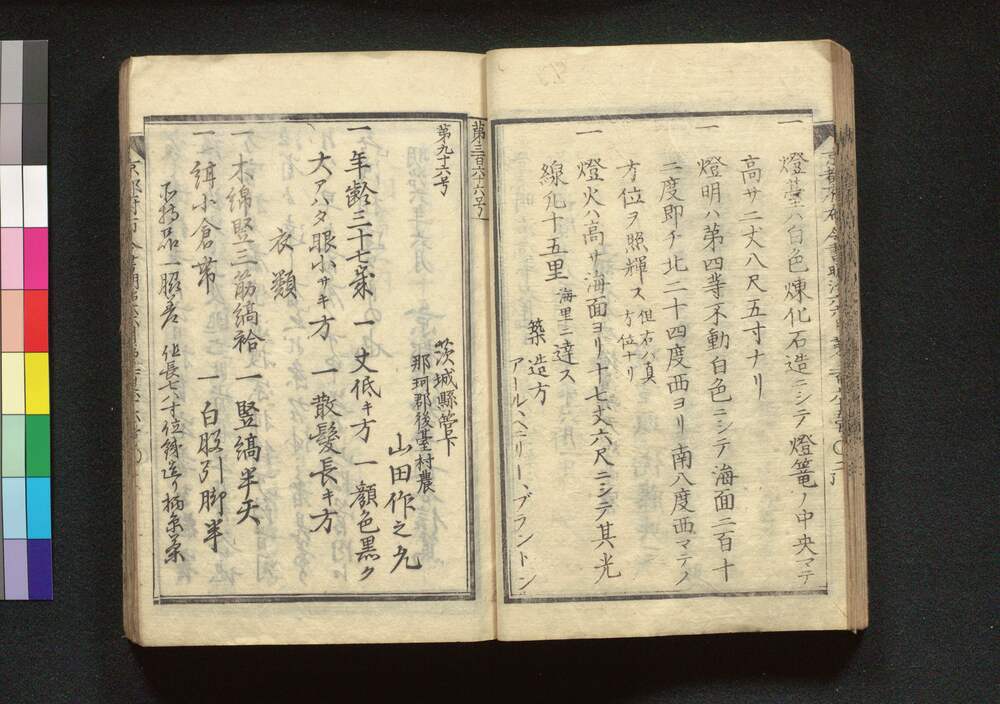 一 燈臺ハ白色煉化石造ニシテ燈篭ノ中央マテ
高サ二丈八尺五寸ナリ
一 燈明ハ第四等不動白色ニシテ海面二百十
二度即チ北二十四度西ヨリ南八度西マテノ
方位ヲ照輝ス 但右ハ真方位ナリ
一 燈火ハ高サ海面ヨリ十七丈六尺ニシテ其光
線九十五里 海里ニ達ス
築造方
アールヘンリー、ブラントン
第三百六十六号
第九十六号
茨城縣管下
那珂郡後臺村農
山田作之允
一 年齢三十七歳 一 丈低キ方 一 顔色黒ク
大アハタ眼小サキ方 一 散髪長キ方
衣類
一 木綿竪三筋縞袷 一 竪縞半天
一 絹小倉帯 一 白股引脚半
所持品一 脇差 但長七八寸位